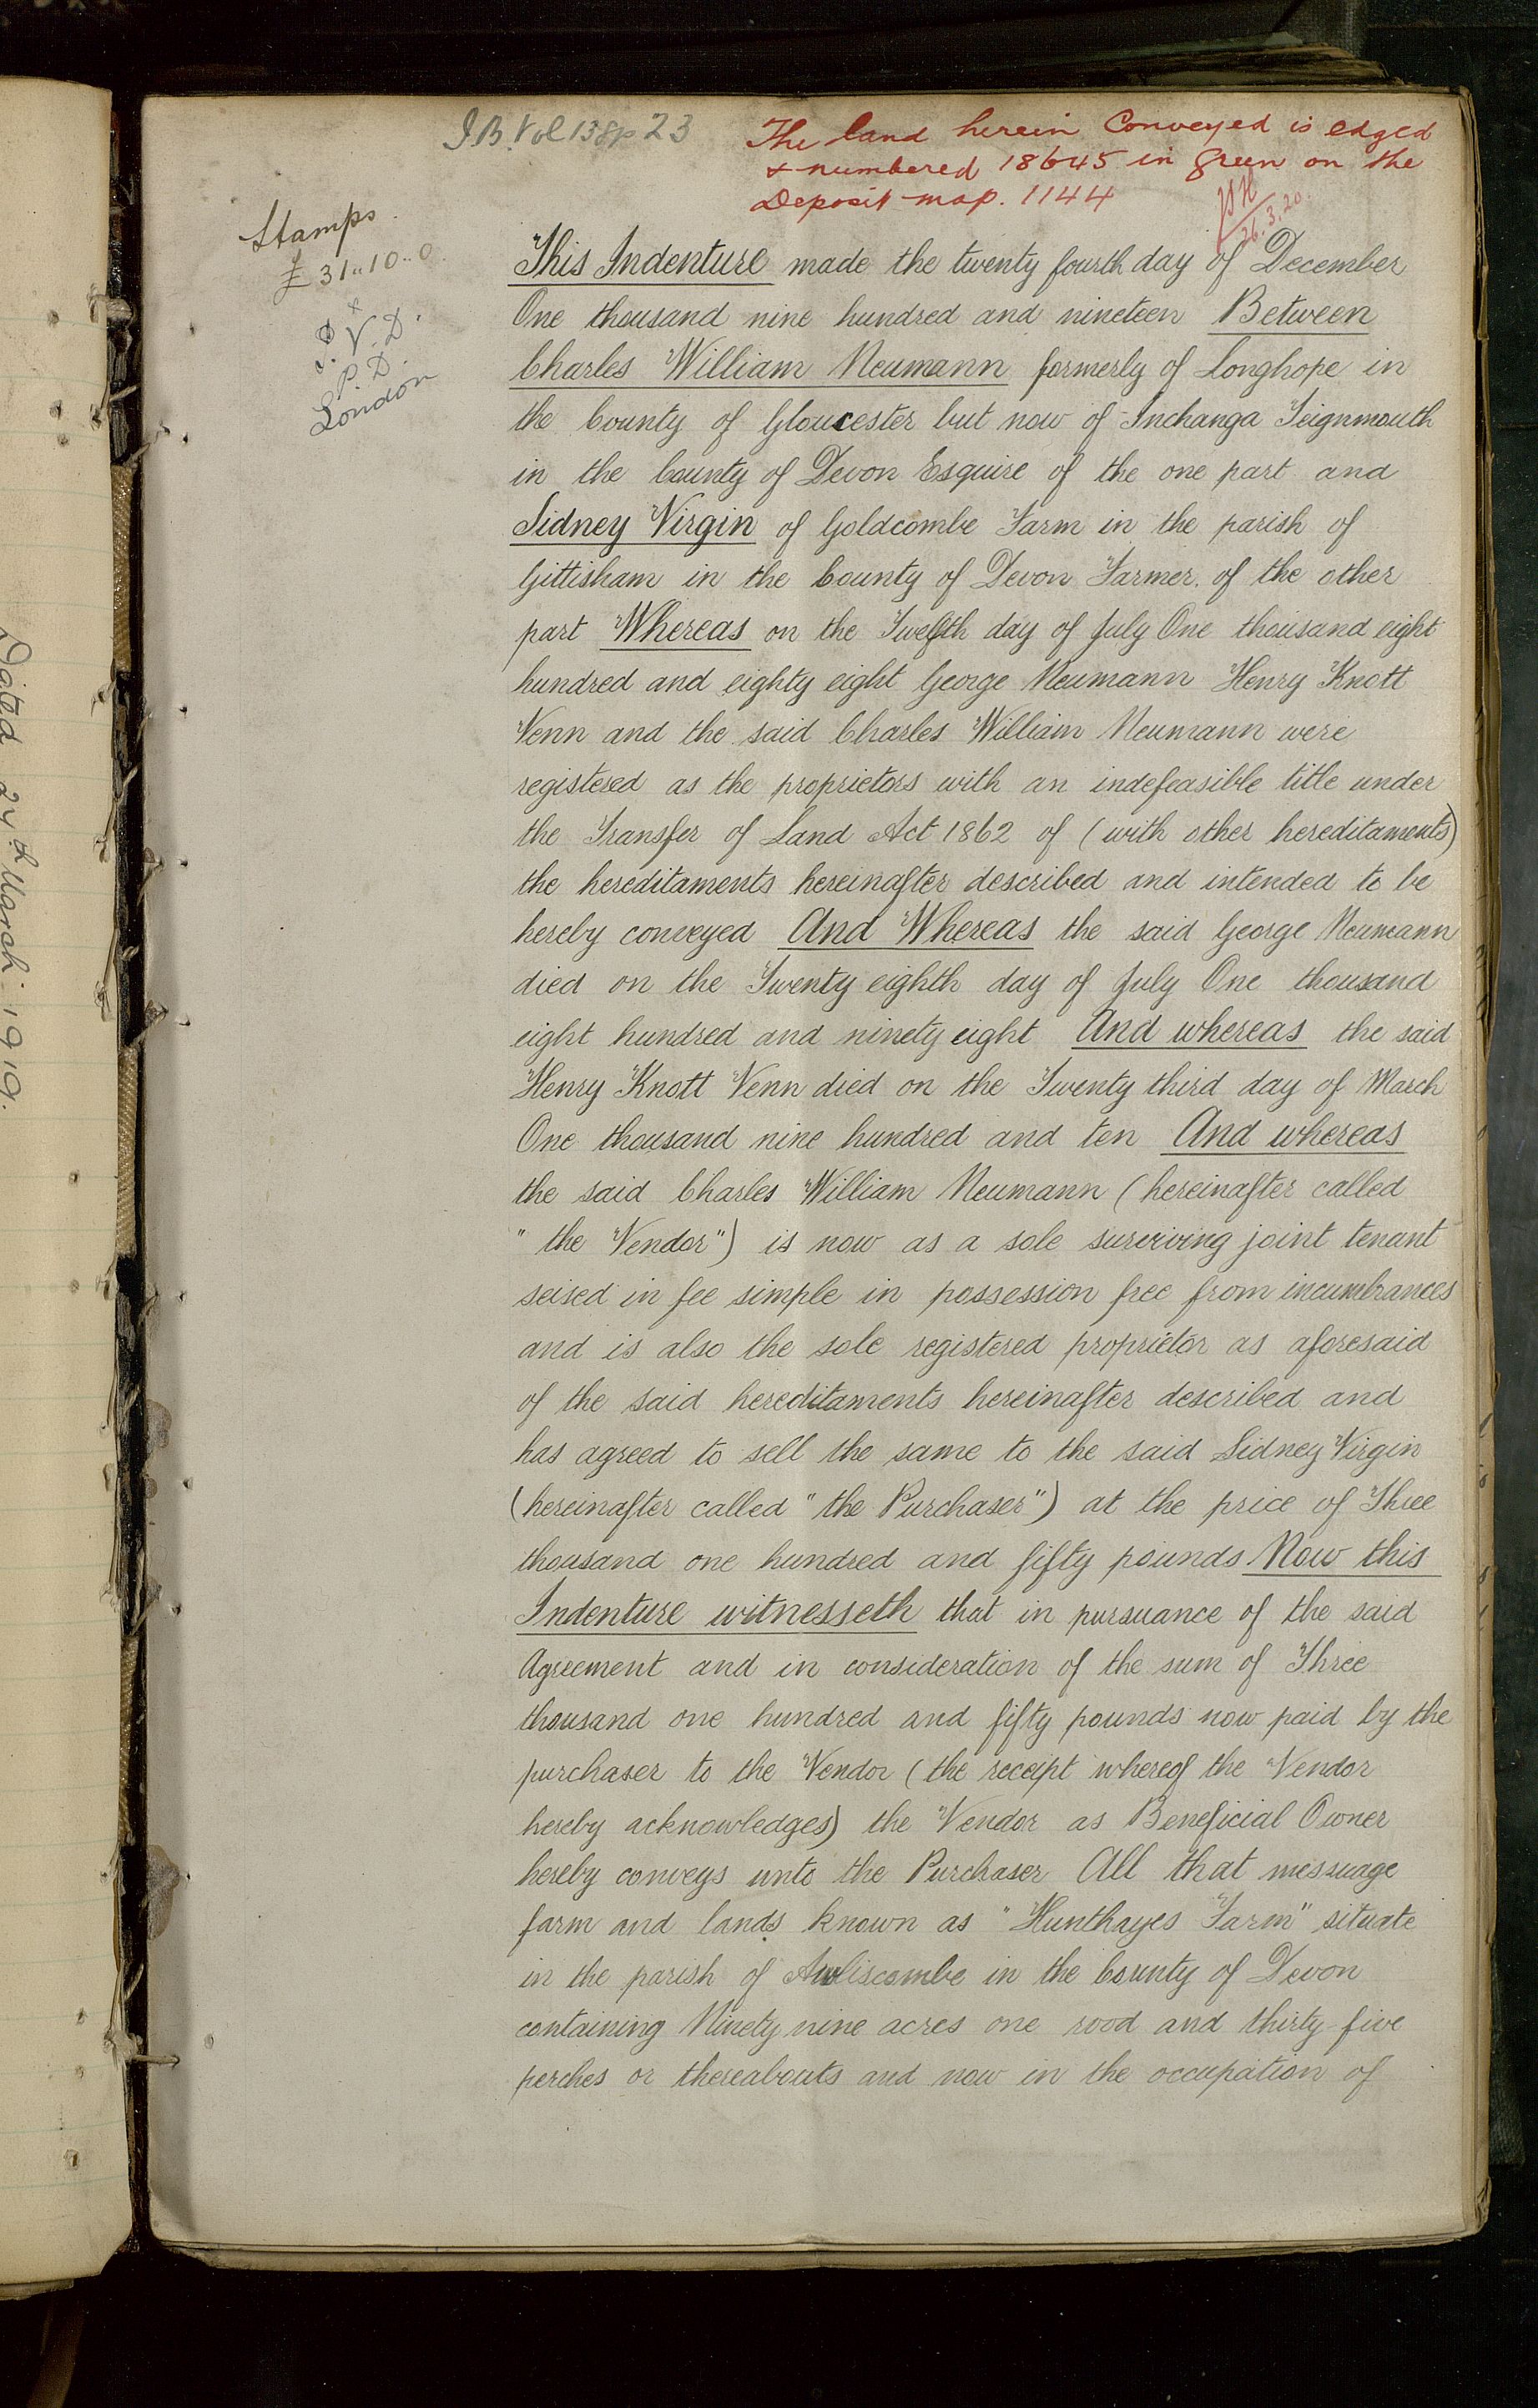 I.B. Vol 138 p 23
The land herein Conveyed is edged
& numbered 18645 in green on the
Deposit map. 1144
26.3.20.
Stamps.
£31"10"0.
I. V. D.
P. D.
London
This Indenture made the twenty fourth day of December
One thousand nine hundred and nineteen Between
Charles William Neumann formerly of Longhope in
the County of Gloucester but now of Inchanga Teignmouth
in the County of Devon Esquire of the one part and
Sidney Virgin of Goldcombe Farm in the parish of
Gittisham in the County of Devon Farmer of the other
part Whereas on the Twelfth day of July One thousand eight
hundred and eighty eight George Neumann Henry Knott
Venn and the said Charles William Neumann were
registered as the proprietors with an indefeasible title under
the Transfer of Land Act 1862 of (with other hereditaments)
the hereditaments hereinafter described and intended to be
hereby conveyed And Whereas the said George Neumann
died on the Twenty eighth day of July One thousand
eight hundred and ninety eight And whereas the said
Henry Knott Venn died on the Twenty third day of March
One thousand nine hundred and ten And whereas
the said Charles William Neumann (hereinafter called
"the Vendor") is now as a sole surviving joint tenant
seised in fee simple in possession free from incumbrances
and is also the sole registered proprietor as aforesaid
of the said hereditaments hereinafter described and
has agreed to sell the same to the said Sidney Virgin
(hereinafter called "the Purchaser") at the price of Three
thousand one hundred and fifty pounds Now this
Indenture witnesseth that in pursuance of the said
Agreement and in consideration of the sum of Three
thousand one hundred and fifty pounds now paid by the
purchaser to the Vendor (the receipt whereof the Vendor
hereby acknowledges) the Vendor as Beneficial Owner
hereby conveys unto the Purchaser All that messuage
farm and lands known as "Hunthayes Farm" situate
in the parish of Awliscombe in the County of Devon
containing Ninety nine acres one rood and thirty five
perches or thereabouts and now in the occupation of
Dated 24th March 1919.